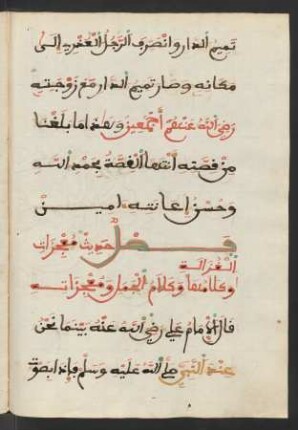 تميم الدار وانصرف الرجل العفريت الى
مكانه وصار تميم الدار مع زوجته
رضي الله عنهم أجمعين وهذا ما بلغنا
من قصته انتهى القصة بحمد الله
وحسن إعانته امين
فصل حديث معجزات
الغزالة
وكلامها وكلام الجمل ومعجزاته
قال الإمام علي رضي الله عنه بينما نحن
عند النبي صلى الله عليه وسلم فإذا بصوت